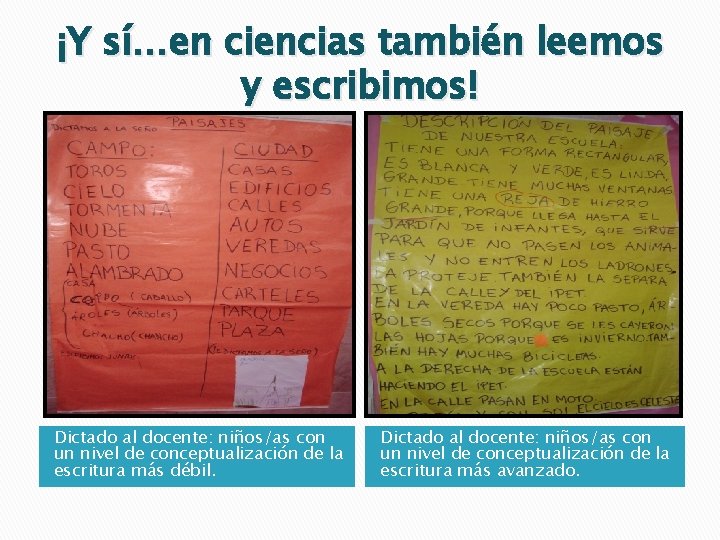 ¡Y sí...en ciencias también leemos
y escribimos!
DICTAMOS A LA SEÑO PAISAJES
CAMPO:
TOROS
CIELO
TORMENTA
NUBE
PASTO
ALAMBRADO
CASA
(CABALLO)
(ÁRBOLES)
(CHANCHO)
CIUDAD
CASAS
EDIFICIOS
CALLES
AUTOS
VEREDAS
NEGOCIOS
CARTELES
PARQUE
PLAZA
DESCRIPCIÓN DEL PAISAJE
DE NUESTRA ESCUELA:
TIENE UNA FORMA RECTANGULAR,
ES BLANCA Y VERDE, ES LINDA,
GRANDE TIENE MUCHAS VENTANAS
TIENE UNA REJA DE HIERRO
GRANDE, PORQUE LLEGA HASTA EL
JARDÍN DE INFANTES, QUE SIRVE
PARA QUE NO PASEN LOS ANIMA-
LES Y NO ENTREN LOS LADRONES.
LA PROTEJE. TAMBIÉN LA SEPARA
DE LA CALLE Y DEL IPET.
EN LA VEREDA HAY POCO PASTO, ÁR-
BOLES SECOS PORQUE SE LES CAYERON
LAS HOJAS PORQUE ES INVIERNO. TAM-
BIÉN HAY MUCHAS BICICLETAS.
A LA DERECHA DE LA ESCUELA ESTÁN
HACIENDO EL IPET.
EN LA CALLE PASAN EN MOTO.
EL CIELO ES CELESTE
Dictado al docente: niños/as con
un nivel de conceptualización de la
escritura más débil.
Dictado al docente: niños/as con
un nivel de conceptualización de la
escritura más avanzado.